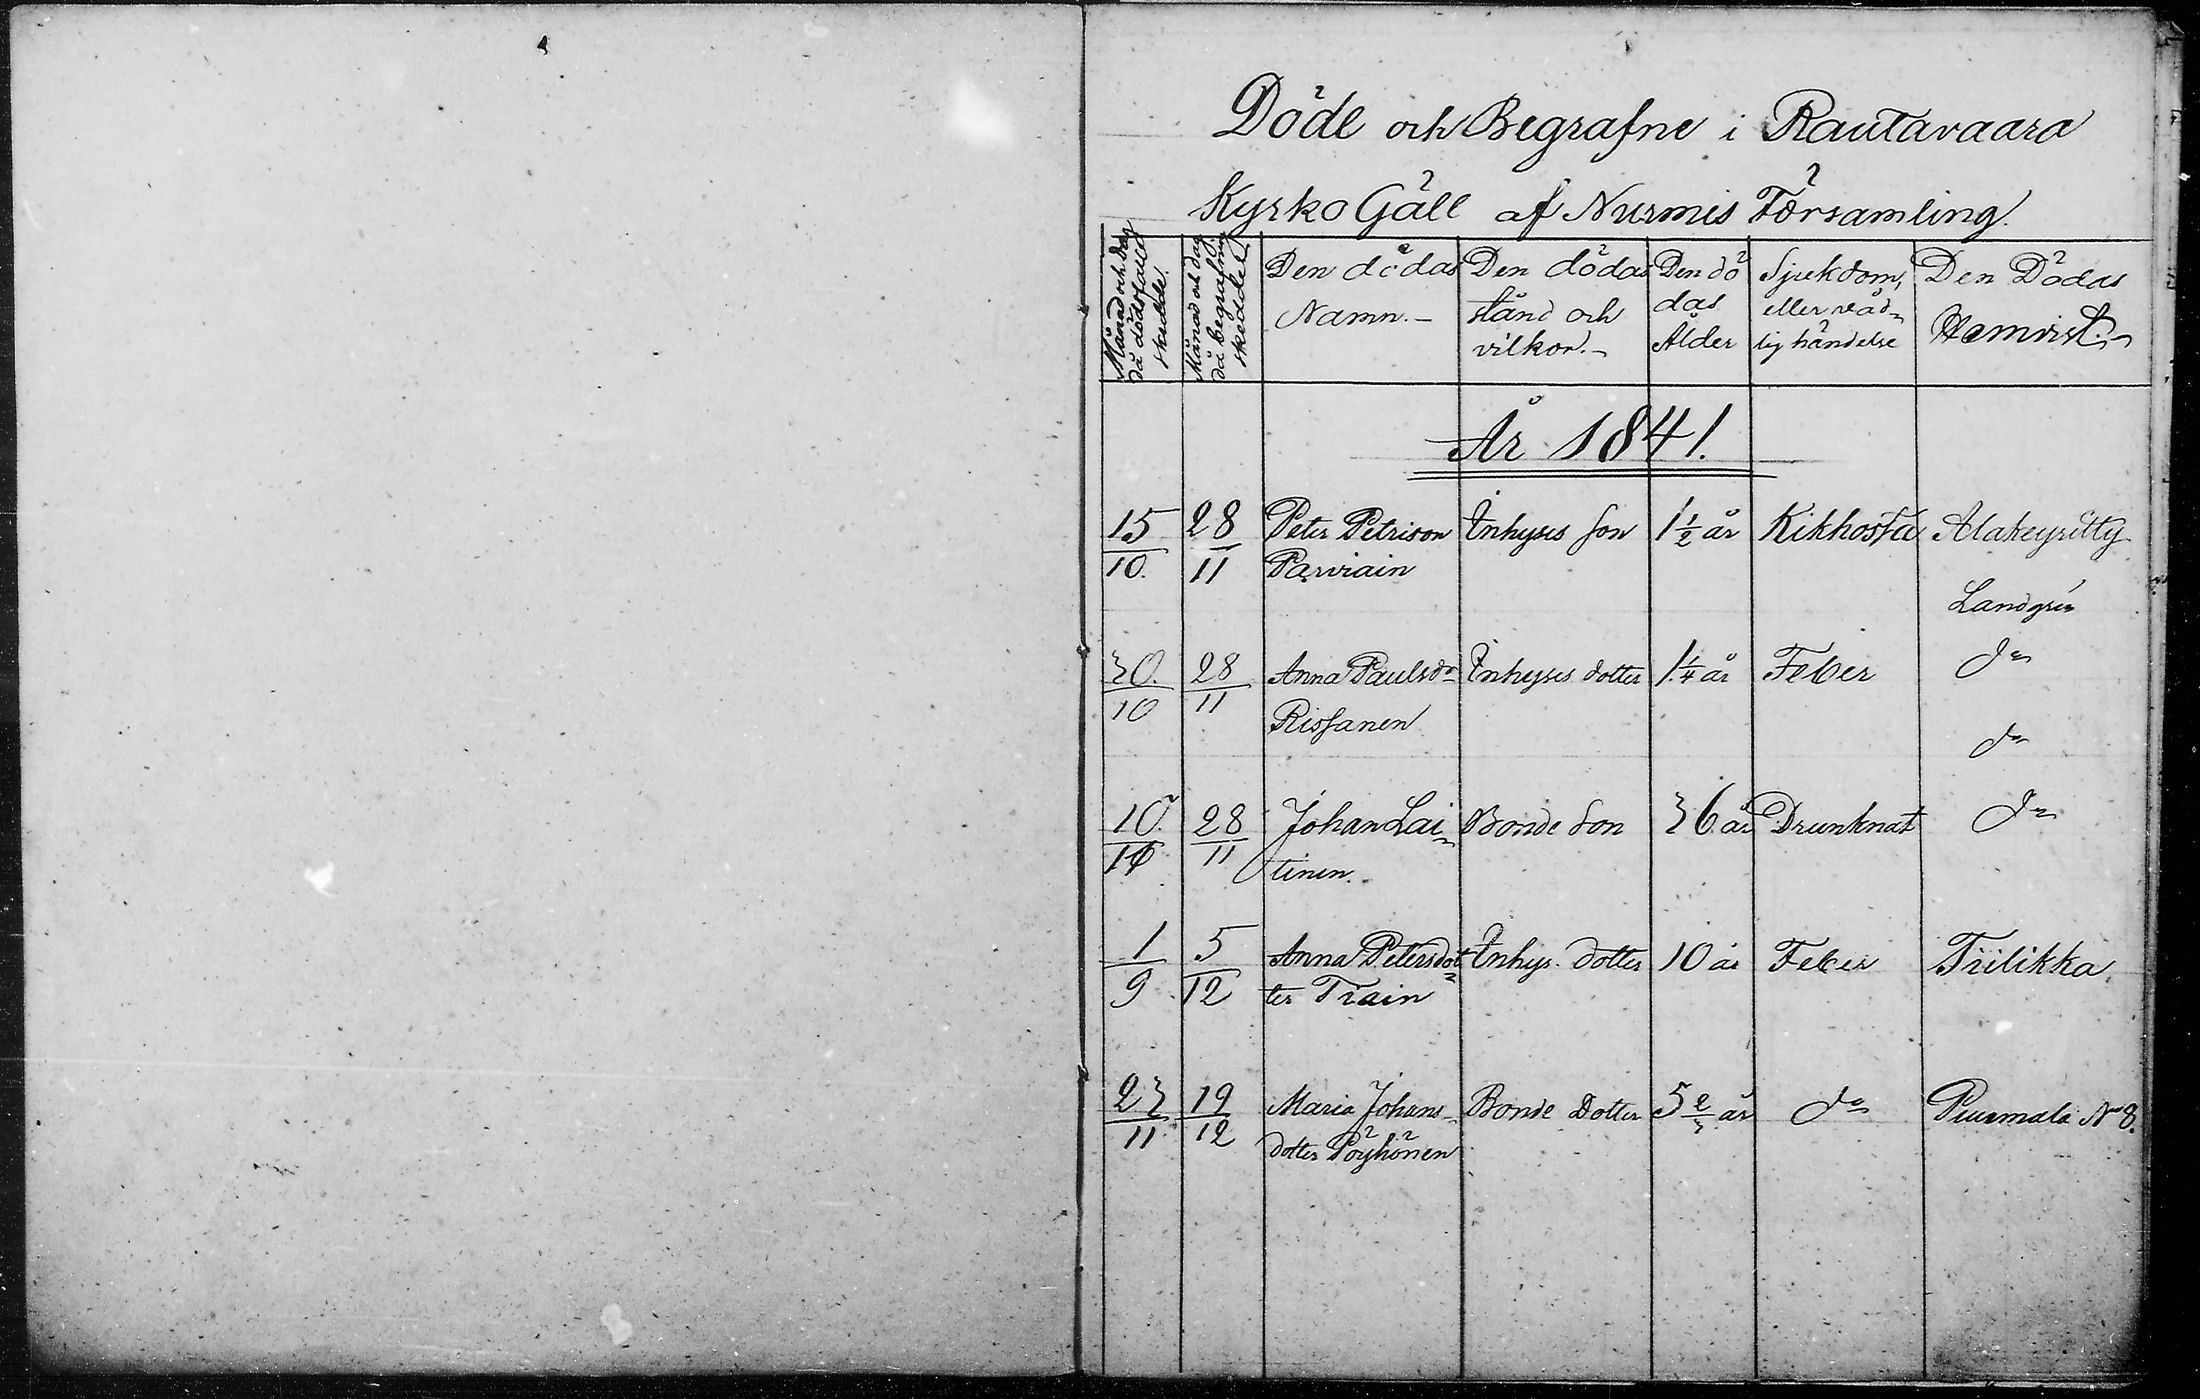 Döde och Begrafne i Rautavaara
Kyrko Gäll af Nurmis Församling.
Månad och dag
då dödsfallet
skedde.
Månad och dag
då begrafning
skedde
Den dödas
Namn.
Den dödas
stånd och
vilkor.
Den dö
das
Ålder
Sjukdom,
eller våd-
lig händelse
Den Dödas
Hemvist.
År 1841.
15/10. 28/11 Peter Petrison Inhyses son 1 1/2 år Kikhosta Alakeyritty
Parviain
Landgrén
30./10 28/11 Anna Paulsdr Inhyses dotter 1 1/4 år Feber do
Rissanen
do
10./10 28/11 Johan Lai- Bonde Son 36 år Drunknat do
tinen.
1/9 5/12 Anna Petersdot- Inhys. dotter 10 år Feber Tiilikka
ter Train
23/11 19/12 Maria Johans- Bonde Dotter 5 2/3 år do Puumala No 8.
dotter Pöyhönen